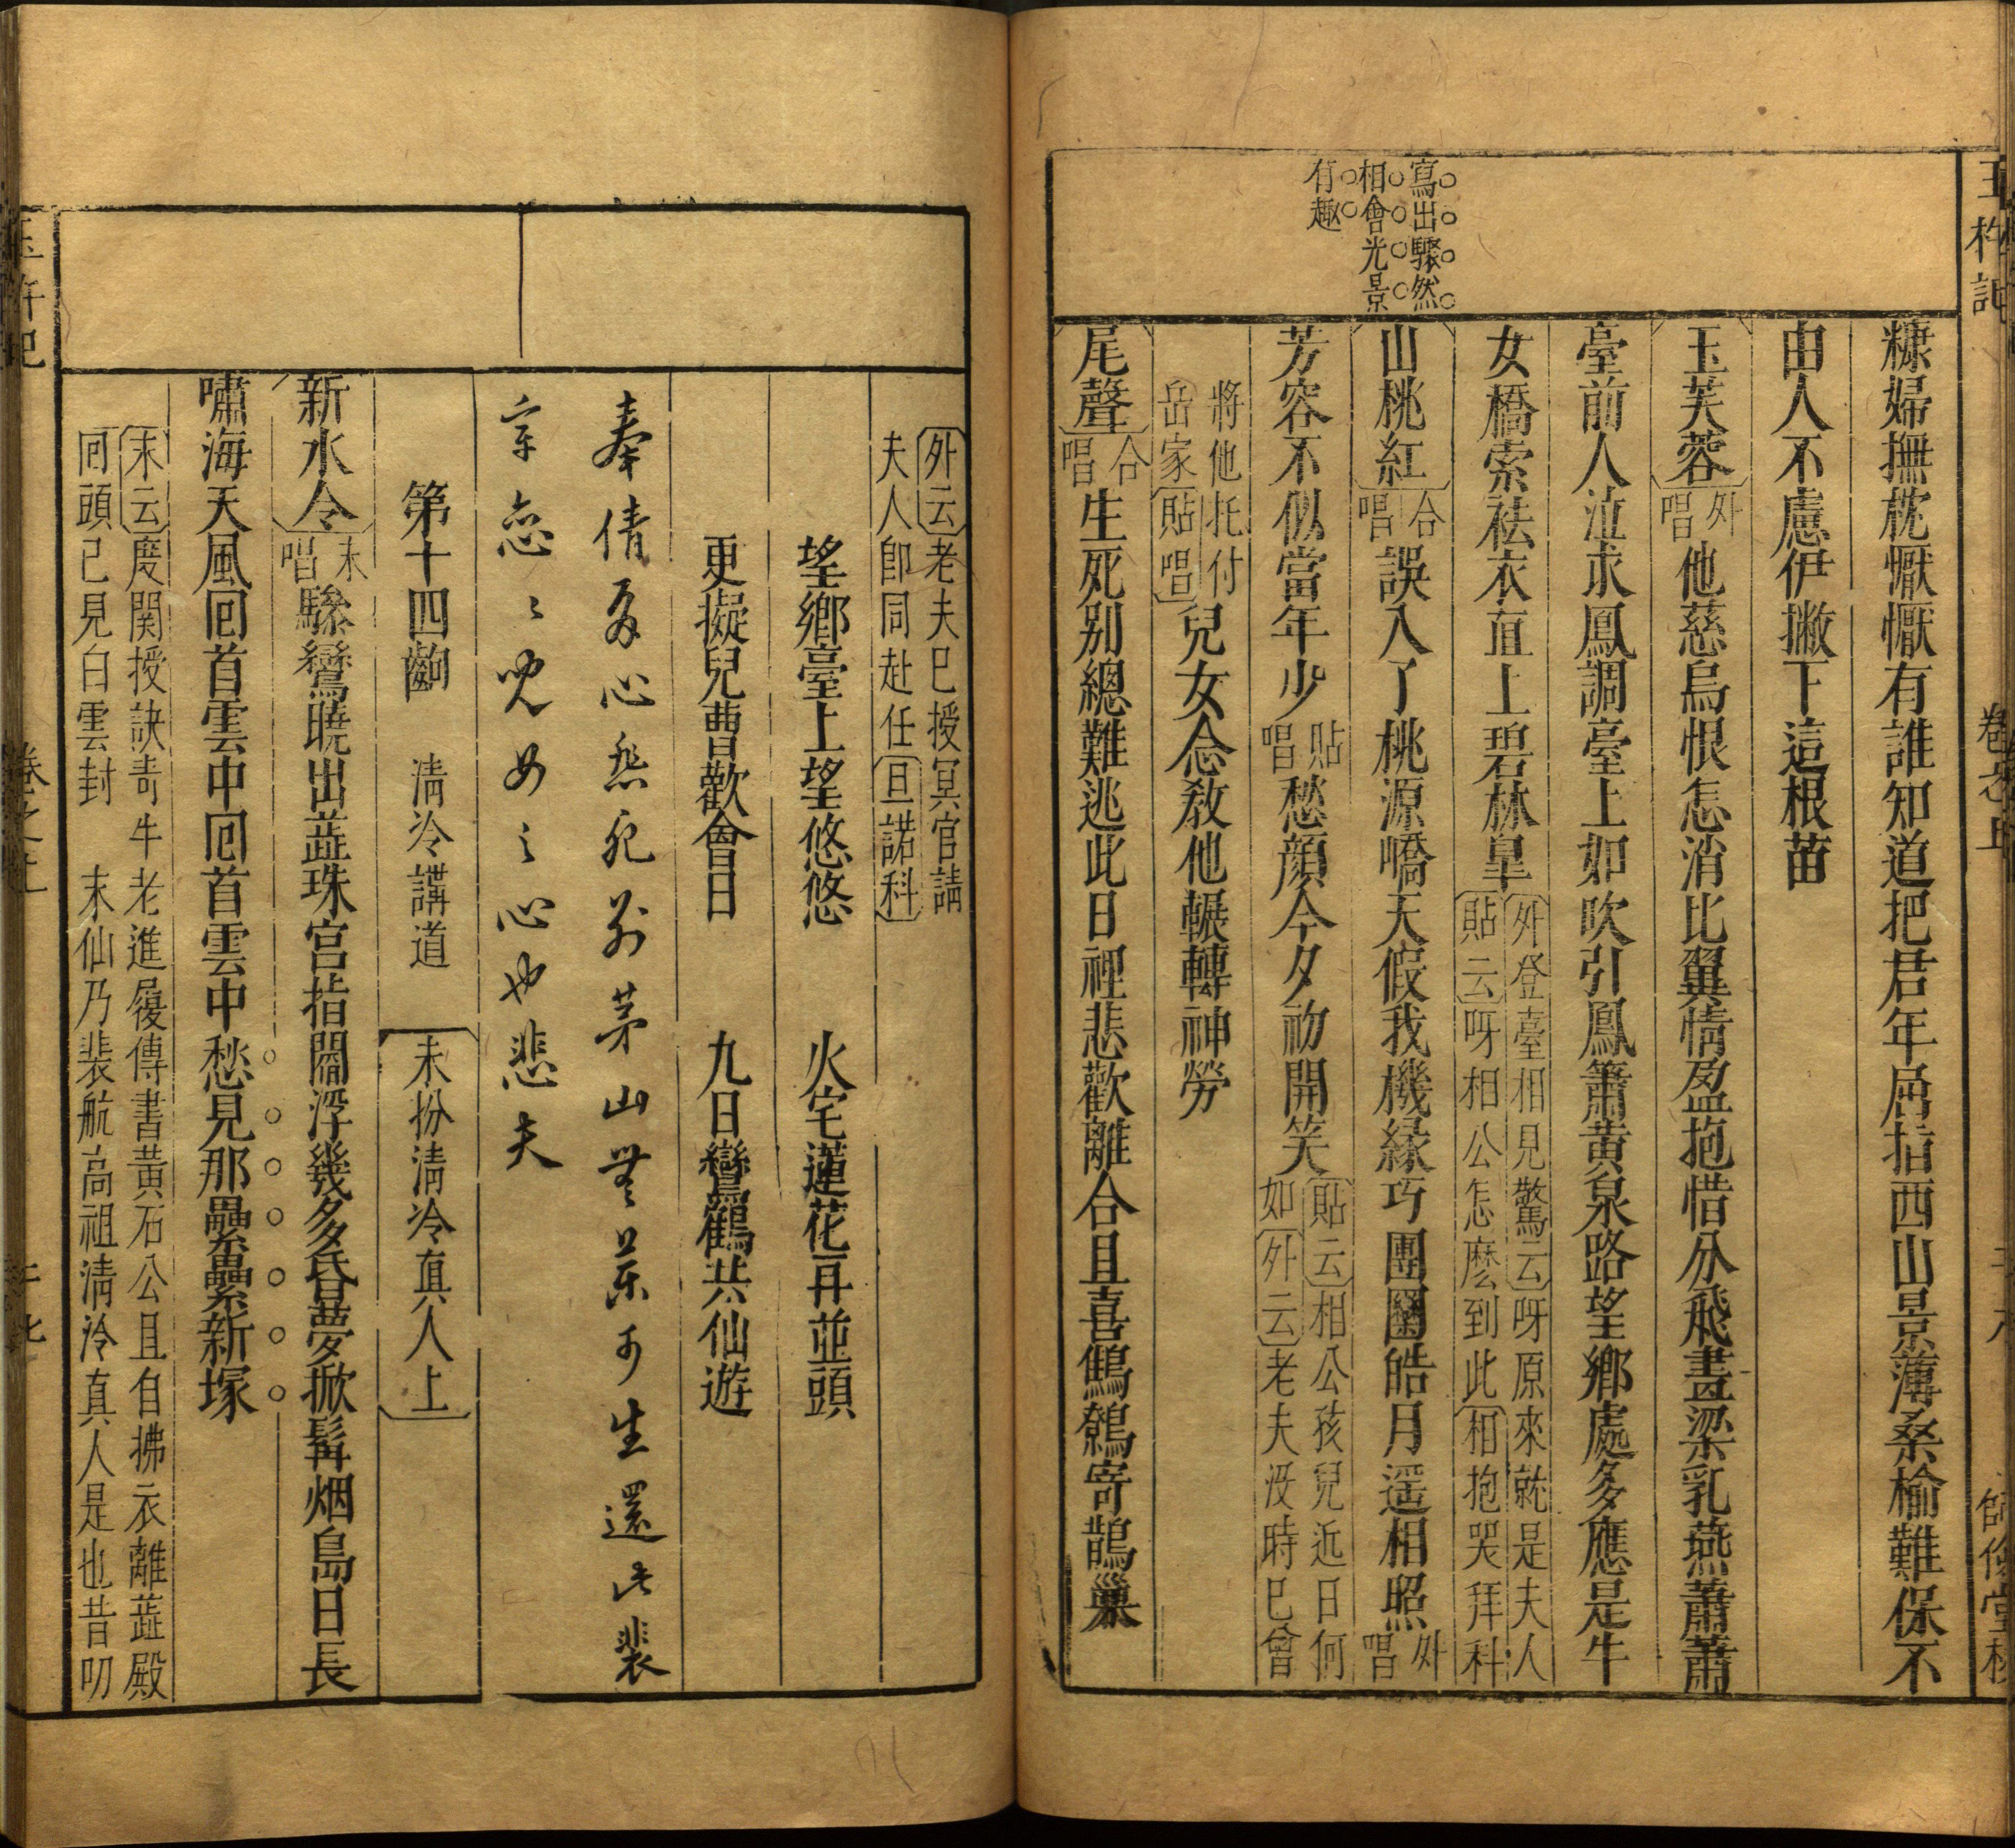 玉杵記
卷之上
師儉堂校
寫出驟然
相會光景
有趣
糠婦撫枕懨懨有誰知道把君年屈指西山景薄桑榆難保不
由人不慮伊撇下這根苗
玉芙蓉外唱他慈烏恨怎消比翼情盈抱惜分飛畫梁乳燕蕭蕭
臺前人泣求鳳調臺上如吹引鳳簫黃泉路望鄉處多應是牛
女橋索祛衣直上碧林皐外登臺相見驚云呀原來就是夫人貼云呀相公怎麽到此相抱哭拜科
山桃紅合唱誤入了桃源嶠天假我機緣巧團圞皓月遥相照外唱
芳容不似當年少貼唱愁顔今夕初開笑貼云相公孩兒近日何如外云老夫没時已曾
將他托付岳家貼唱兒女念教他輾轉神勞
尾聲合唱生死別總難逃此日裡悲歡離合且喜鷦鷯寄鵲巢
外云老夫已授冥官請夫人即同赴任旦諾科
望鄉臺上望悠悠　火宅蓮花再並頭
更擬兒曹歡會日　九日鸞鶴共仙遊
奉倩多心無死別茅山無藥可生還此裴
字戀々兒女之心也悲夫
第十四齣　清冷講道　末扮清冷真人上
新水令末唱驂鸞曉出蕋珠宫指閻浮幾多昏夢掀髯烟島日長
嘯海天風回首雲中回首雲中愁見那纍纍新塚
末云度関授訣青牛老進履傳書黄石公且自拂衣離蕋殿
回頭已見白雲封　末仙乃裴航高祖清冷真人是也昔叨
玉杵記
卷之上